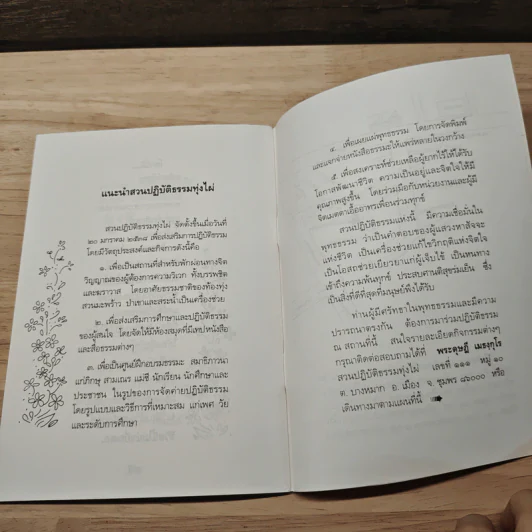 แนะนำสวนปฏิบัติธรรมทุ่งไผ่
สวนปฏิบัติธรรมทุ่งไผ่ จัดตั้งขึ้นเมื่อวันที่
๒๐ มกราคม ๒๕๓๘ เพื่อส่งเสริมการปฏิบัติธรรม
โดยมีวัตถุประสงค์และกิจการดังนี้คือ
๑. เพื่อเป็นสถานที่สำหรับพักผ่อนทางจิต
วิญญาณของผู้ต้องการความวิเวก ทั้งบรรพชิต
และฆราวาส โดยอาศัยธรรมชาติของท้องทุ่ง
สวนมะพร้าว ป่าเขาและสระน้ำเป็นเครื่องช่วย
๒. เพื่อส่งเสริมการศึกษาและปฏิบัติธรรม
ของผู้สนใจ โดยจัดให้มีห้องสมุดที่มีเทปหนังสือ
และสื่อธรรมต่างๆ
๓. เพื่อเป็นศูนย์ฝึกอบรมธรรมะ สมาธิภาวนา
แก่ภิกษุ สามเณร แม่ชี นักเรียน นักศึกษาและ
ประชาชน ในรูปของการจัดค่ายปฏิบัติธรรม
โดยรูปแบบและวิธีการที่เหมาะสม แก่เพศ วัย
และระดับการศึกษา
๔. เพื่อเผยแผ่พุทธธรรม โดยการจัดพิมพ์
และแจกจ่ายหนังสือธรรมะให้แพร่หลายในวงกว้าง
๕. เพื่อสงเคราะห์ช่วยเหลือผู้ยากไร้ให้ได้รับ
โอกาสพัฒนาชีวิต ความเป็นอยู่และจิตใจให้มี
คุณภาพสูงขึ้น โดยร่วมมือกับหน่วยงานและผู้มี
จิตเมตตาเอื้ออาทรเพื่อนร่วมทุกข์
สวนปฏิบัติธรรมแห่งนี้ มีความเชื่อมั่นใน
พุทธธรรม ว่าเป็นคำตอบของผู้แสวงหาสัจจะ
แห่งชีวิต เป็นเครื่องช่วยแก้ไขวิกฤติแห่งจิตใจ
เป็นโอสถช่วยเยียวยาแก่ผู้เจ็บไข้ เป็นหนทาง
เข้าถึงความพ้นทุกข์ ประสบศานติสุขร่มเย็น ซึ่ง
เป็นสิ่งที่ดีที่สุดที่มนุษย์พึงได้รับ
ท่านผู้มีศรัทธาในพุทธธรรมและมีความ
ปรารถนาตรงกัน ต้องการมาร่วมปฏิบัติธรรม
ณ สถานที่นี้ สนใจรายละเอียดกิจกรรมต่างๆ
กรุณาติดต่อสอบถามได้ที่ พระดุษฎี เมธงฺกุโร
สวนปฏิบัติธรรมทุ่งไผ่ เลขที่ ๑๑๑ หมู่ ๑๐
ต. บางหมาก อ. เมือง จ. ชุมพร ๘๖๐๐๐ หรือ
เดินทางมาตามแผนที่นี้